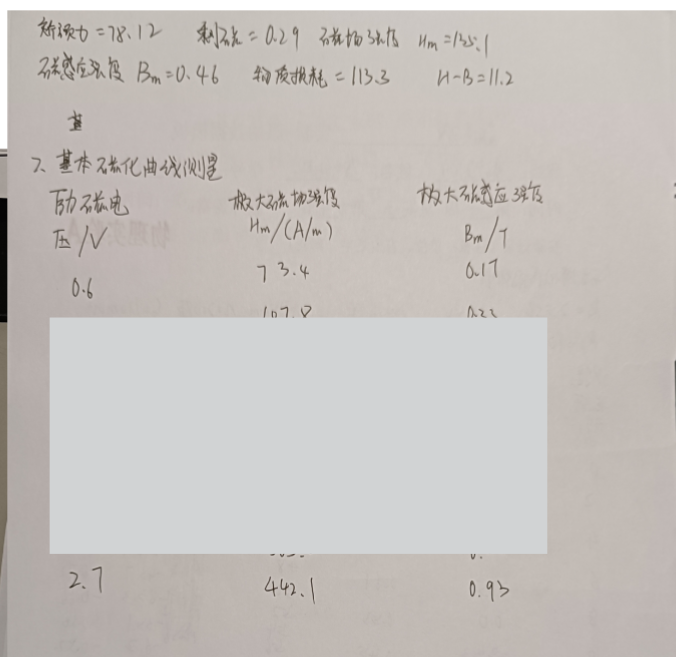 矫顽力=78.12 剩磁=0.29 磁场强度 Hm=135.1
磁感应强度 Bm=0.46 物质损耗=113.3 H-B=11.2
基
2、基本磁化曲线测量
励磁电 极大磁场强度 极大磁感应强度
压/V Hm/(A/m) Bm/T
0.6 73.4 0.17
107.8
2.7 442.1 0.93